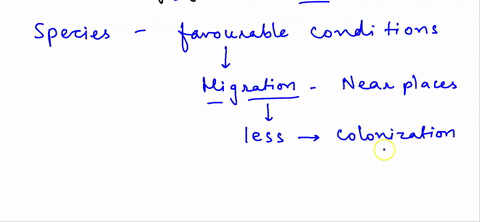 Species - favourable conditions
↓
Migration - Near places
↓
less → colonization